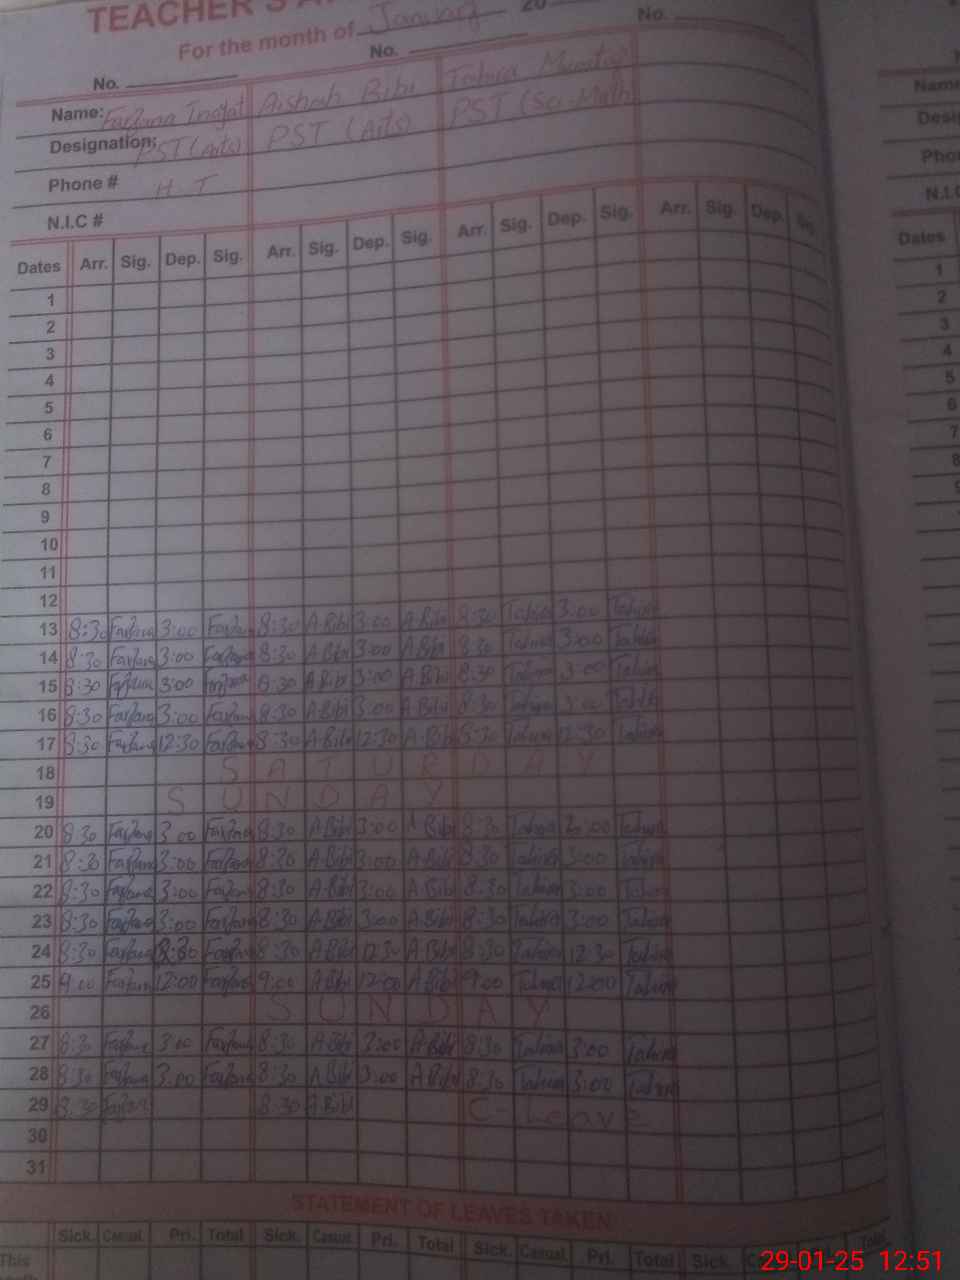 TEACHER'S
For the month of January 20
No. No. No.
Name: Farzana Inayat Aishah Bibi Tahira Mumtaz
Designation: PST (Arts) PST (Arts) PST (Sc. Math
Phone # H T
N.I.C #
Dates Arr. Sig. Dep. Sig. Arr. Sig. Dep. Sig. Arr. Sig. Dep. Sig. Arr. Sig. Dep. Sig
1
2
3
4
5
6
7
8
9
10
11
12
13 8:30 Farzana 3:00 Farzana 8:30 A Bibi 3:00 A Bibi 8:30 Tahira 3:00 Tahira
14 8:30 Farzana 3:00 Farzana 8:30 A Bibi 3:00 A Bibi 8:30 Tahira 3:00 Tahira
15 8:30 Farzana 3:00 Farzana 8:30 A Bibi 3:00 A Bibi 8:30 Tahira 3:00 Tahira
16 8:30 Farzana 3:00 Farzana 8:30 A Bibi 3:00 A Bibi 8:30 Tahira 3:00 Tahira
17 8:30 Farzana 12:30 Farzana 8:30 A Bibi 12:30 A Bibi 8:30 Tahira 12:30 Tahira
18 SATURDAY
19 SUNDAY
20 8:30 Farzana 3:00 Farzana 8:30 A Bibi 3:00 A Bibi 8:30 Tahira 3:00 Tahira
21 8:30 Farzana 3:00 Farzana 8:30 A Bibi 3:00 A Bibi 8:30 Tahira 3:00 Tahira
22 8:30 Farzana 3:00 Farzana 8:30 A Bibi 3:00 A Bibi 8:30 Tahira 3:00 Tahira
23 8:30 Farzana 3:00 Farzana 8:30 A Bibi 3:00 A Bibi 8:30 Tahira 3:00 Tahira
24 8:30 Farzana Farzana 8:30 A Bibi 12:30 A Bibi 8:30 Tahira 12:30 Tahira
25 9:00 Farzana 12:00 Farzana 9:00 A Bibi 12:00 A Bibi 9:00 Tahira 12:00 Tahira
26 SUNDAY
27 8:30 Farzana 3:00 Farzana 8:30 A Bibi 3:00 A Bibi 8:30 Tahira 3:00 Tahira
28 8:30 Farzana 3:00 Farzana 8:30 A Bibi 3:00 A Bibi 8:30 Tahira 3:00 Tahira
29 8:30 Farzana 8:30 A Bibi C-Leave
30
31
STATEMENT OF LEAVES TAKEN
Sick. Casual Pri. Total Sick. Casual Pri. Total Sick. Casual Pri. Total Sick. Total
This
Name
Dates
1
2
3
4
5
6
7
8
29-01-25 12:51